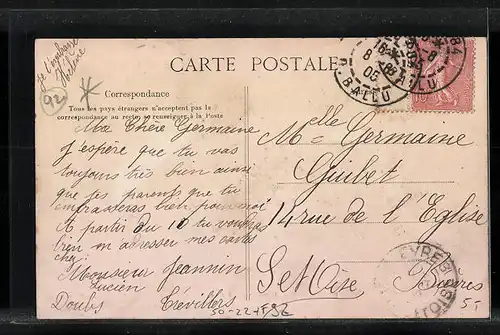 je t'embrasse
Hélène
92
CARTE POSTALE
Correspondance
Tous les pays étrangers n'acceptent pas la
correspondance au recto, se renseigner à la Poste
Ma Chère Germaine
J espère que tu vas
toujours très bien ainsi
que tes parents que tu
embrasseras bien pour moi
A partir du 10 tu voudras
bien m adresser mes cartes
chez
Monsieur Jeannin
Lucien
Doubs Trévillers
Melle Germaine
Guibet
14 rue de l'Eglise
St Mxe Sèvres
BALLU
8 -8
05
84
10
SÈVRES
50-22+F9Z
5-